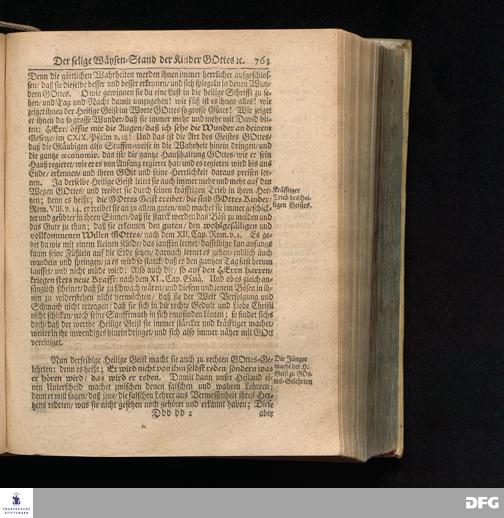 Der selige Wäysen-Stand der Kinder GOttes ꝛc. 763
Denn die göttlichen Wahrheiten werden ihnen immer herrlicher aufgeschlos-
sen/ daß sie dieselbe besser und besser erkennen/ und sich spiegeln in denen Wun-
dern GOttes. O wie gewinnen sie da eine Lust in die heilige Schrifft zu se-
hen/ und Tag und Nacht damit umzugehen! wie süß ist es ihnen alles! wie
zeiget ihnen der Heilige Geist im Worte GOttes so grosse Güter! Wie zeiget
er ihnen da so grosse Wunder/ daß sie immer mehr und mehr mit David bit-
ten: HErr/ öffne mir die Augen/ daß ich sehe die Wunder an deinem
Gesetze/ im CXIX. Psalm v. 18! Und das ist die Art des Geistes GOttes/
daß die Gläubigen also Stuffen-weise in die Wahrheit hinein dringen/ und
die gantze œconomie, das ist/ die gantze Haußhaltung GOttes/ wie er sein
Hauß regieret/ wie er es von Anfang regieret hat/ und es regieren wird bis ans
Ende/ erkennen/ und ihren GOtt und seine Herrlichkeit daraus preisen ler-
nen. Ja derselbe Heilige Geist leitet sie auch immer mehr und mehr auf den
Wegen GOttes/ und treibet sie durch seinen kräfftigen Trieb in ihren Her-
tzen; denn es heißt; die GOttes Geist treibet/ die sind GOttes Kinder/
Rom. VIII. v. 14. er treibet sie an zu allem guten/ und machet sie immer geschick-
ter und geübter in ihren Sinnen/ daß sie starck werden das Böse zu meiden und
das Gute zu thun; daß sie erkennen den guten/ den wohlgefälligen und
vollkommenen Willen GOttes/ nach dem XII. Cap. Rom. v. 2. Es ge-
het da wie mit einem kleinen Kinde/ das lauffen lernet/ dasselbige kan anfangs
kaum seine Füßlein auf die Erde setzen/ darnach lernet es gehen/ endlich auch
wandeln und springen/ ja es wird so starck/ daß es den gantzen Tag fast herum
lauffet/ und nicht müde wird: Also auch die/ so auf den HErrn harren/
kriegten stets neue Krafft/ nach dem XL. Cap. Esaiä. Und ob es gleich an-
fänglich scheinet/ daß sie zu schwach wären/ und diesem und jenem Bösen in ih-
nen zu widerstehen nicht vermöchten/ daß sie der Welt Verfolgung und
Schmach nicht ertragen/ daß sie sich in die rechte Gedult und Liebe Christi
nicht schicken/ noch seine Sanfftmuth in sich empfinden könten; so findet sichs
doch/ daß der werthe Heilige Geist sie immer stärcker und kräfftiger machet/
weiter in ihr inwendiges hinein dringet/ und sich also immer näher mit GOtt
vereiniget.
Kräfftiger
Trieb des Hei-
ligen Geistes.
Nun derselbige Heilige Geist macht sie auch zu rechten GOttes-Ge-
lehrten; denn es heißt; Er wird nicht von ihm selbst reden/ sondern was
er hören wird/ das wird er reden. Damit dann unser Heiland ei-
nen Unterscheid machet zwischen denen falschen und wahren Lehrern;
denn er will sagen/ daß jene/ die falschen Lehrer aus Vermessenheit ihres Her-
tzens redeten/ was sie nicht gesehen noch gehöret und erkannt haben; Diese
Die Jünger
macht der H.
Geist zu GOt-
tes-Gelehrten
Ddd dd 2
aber
FRANCKESCHE
STIFTUNGEN
DFG